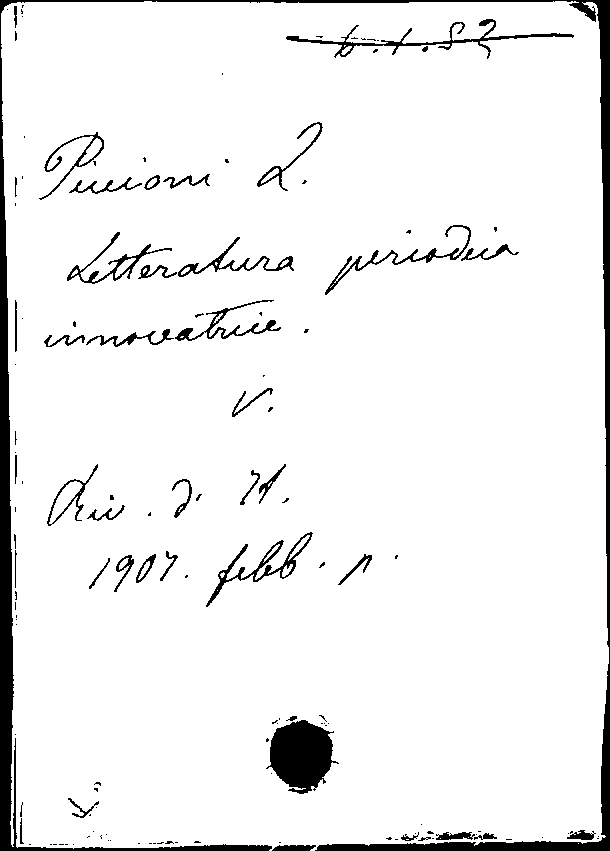 6.1.82
Piccioni L.
Letteratura periodica
innovatrice.
v.
Riv. d' It.
1907. febb. p.